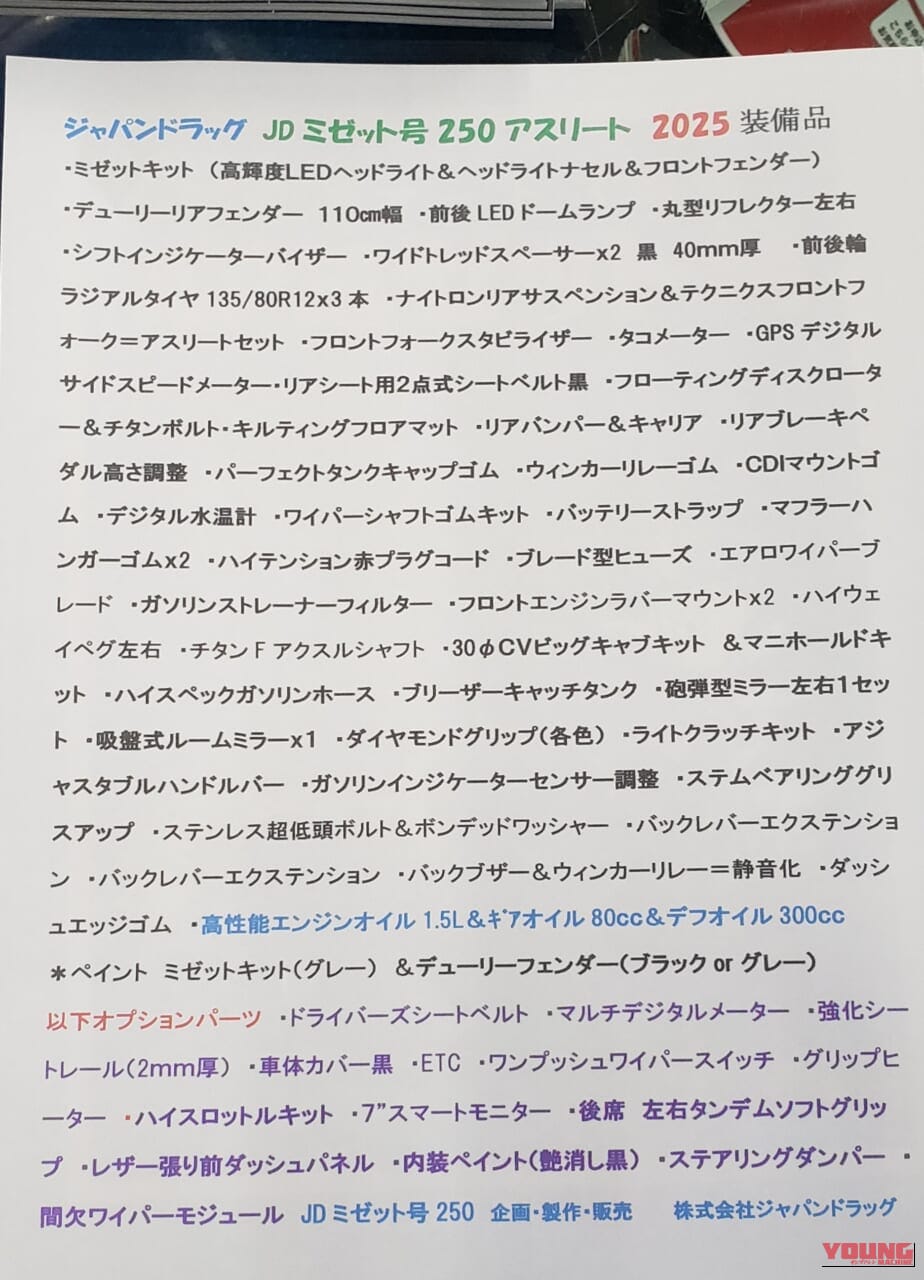 ジャパンドラッグ JD ミゼット号 250 アスリート 2025 装備品
・ミゼットキット （高輝度LEDヘッドライト＆ヘッドライトナセル＆フロントフェンダー）
・デューリーリアフェンダー 110㎝幅 ・前後 LED ドームランプ ・丸型リフレクター左右
・シフトインジケーターバイザー ・ワイドトレッドスペーサーx2 黒 40mm厚 ・前後輪
ラジアルタイヤ 135/80R12x3 本 ・ナイトロンリアサスペンション＆テクニクスフロントフ
ォーク＝アスリートセット ・フロントフォークスタビライザー ・タコメーター ・GPS デジタル
サイドスピードメーター・リアシート用2点式シートベルト黒 ・フローティングディスクロータ
ー＆チタンボルト・キルティングフロアマット ・リアバンパー＆キャリア ・リアブレーキペ
ダル高さ調整 ・パーフェクトタンクキャップゴム ・ウィンカーリレーゴム ・CDIマウントゴ
ム ・デジタル水温計 ・ワイパーシャフトゴムキット ・バッテリーストラップ ・マフラーハ
ンガーゴムx2 ・ハイテンション赤プラグコード ・ブレード型ヒューズ ・エアロワイパーブ
レード ・ガソリンストレーナーフィルター ・フロントエンジンラバーマウントx2 ・ハイウェ
イペグ左右 ・チタン F アクスルシャフト ・30φCVビッグキャブキット ＆マニホールドキ
ット ・ハイスペックガソリンホース ・ブリーザーキャッチタンク ・砲弾型ミラー左右1セッ
ト ・吸盤式ルームミラーx1 ・ダイヤモンドグリップ（各色） ・ライトクラッチキット ・アジ
ャスタブルハンドルバー ・ガソリンインジケーターセンサー調整 ・ステムベアリンググリ
スアップ ・ステンレス超低頭ボルト＆ボンデッドワッシャー ・バックレバーエクステンショ
ン ・バックレバーエクステンション ・バックブザー＆ウィンカーリレー＝静音化 ・ダッシ
ュエッジゴム ・高性能エンジンオイル 1.5L＆ｷﾞｱオイル 80cc＆デフオイル 300cc
＊ペイント ミゼットキット（グレー） ＆デューリーフェンダー（ブラック or グレー）
以下オプションパーツ ・ドライバーズシートベルト ・マルチデジタルメーター ・強化シー
トレール（2mm厚） ・車体カバー黒 ・ETC ・ワンプッシュワイパースイッチ ・グリップヒ
ーター ・ハイスロットルキット ・7”スマートモニター ・後席 左右タンデムソフトグリッ
プ ・レザー張り前ダッシュパネル ・内装ペイント（艶消し黒） ・ステアリングダンパー ・
間欠ワイパーモジュール JD ミゼット号 250 企画・製作・販売 株式会社ジャパンドラッグ
YOUNG
MACHINE